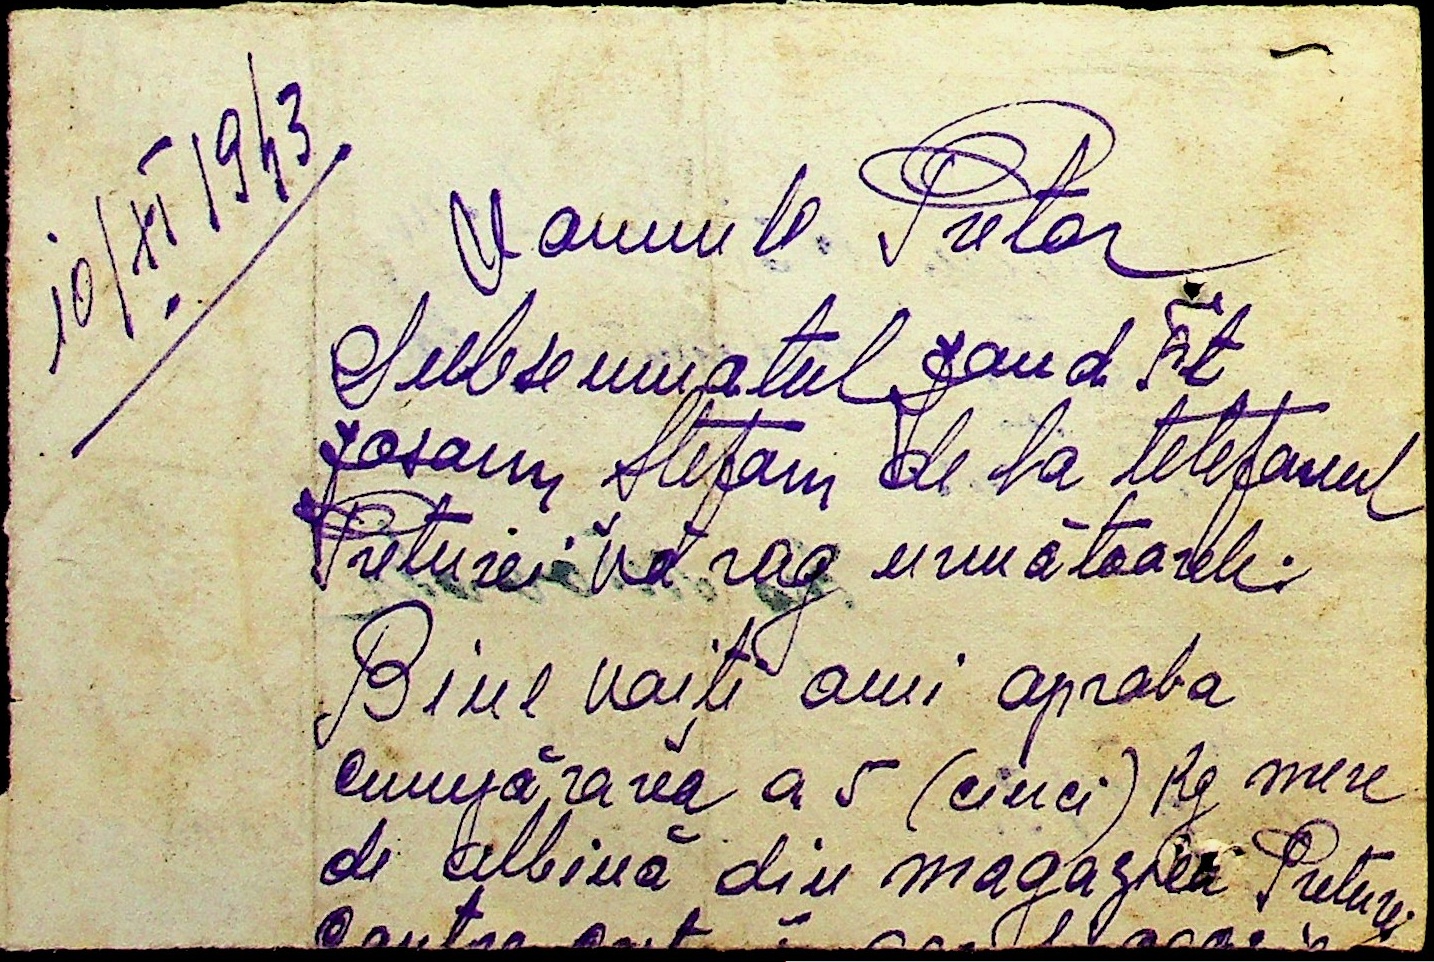 10/XI 1943
Domnule Pretor
Subsemnatul jand. Frt
Josan Ștefan de la telefonul
Preturei vă rog următoarele:
Bine voiți ami aproba
cumpărarea a 5 (cinci) Kg mere
de albină din magazia Preturei